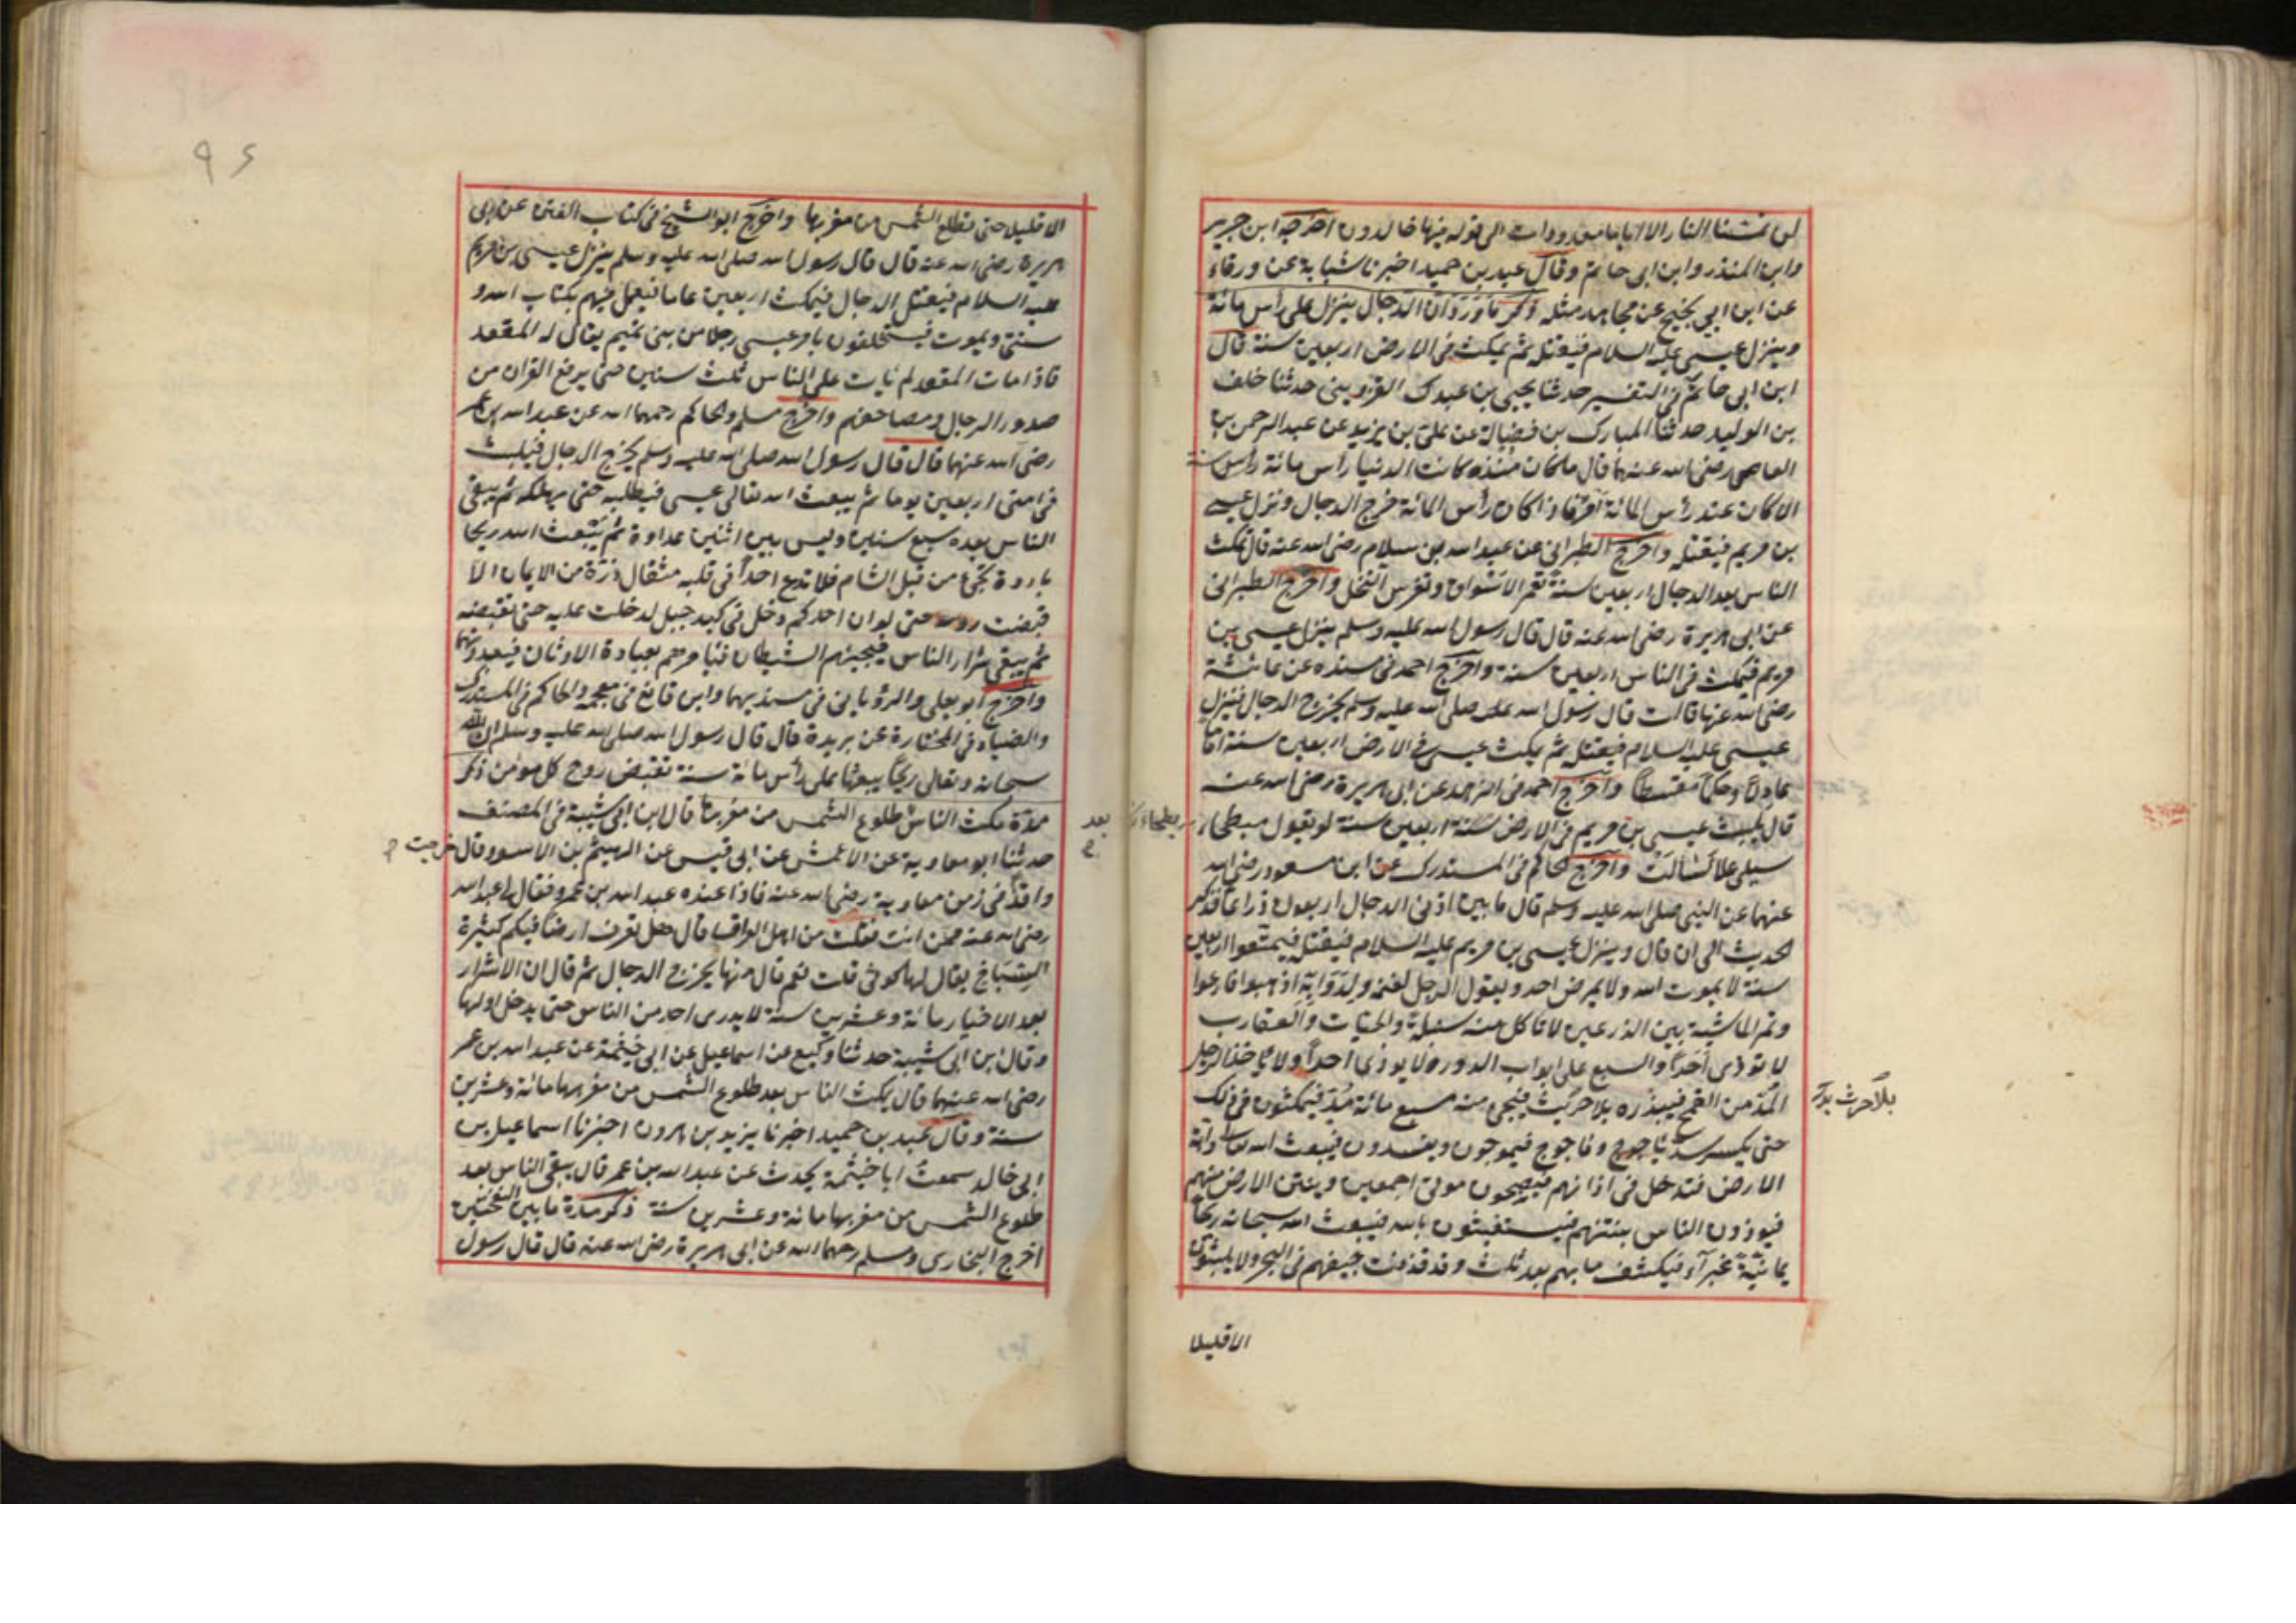 لن تمسنا النار الا اياما معدودات الى قوله فيها خالدون اخرجه ابن جرير
وابن المنذر وابن ابى حاتم وقال عبد بن حميد اخبرنا شبابة عن ورقاء
عن ابن ابي نجيح عن مجاهد مثله ذكر ما ورد ان الدجال ينزل على راس مائة
وينزل عيسى عليه السلام فيقتله ثم يمكث فى الارض اربعين سنة قال
ابن ابى حاتم فى التفسير حدثنا يحيى بن عبدك القزوينى حدثنا خلف
بن الوليد حدثنا المبارك بن فضالة عن على بن يزيد عن عبد الرحمن بن
العاصى رضى الله عنهما قال ما كان منذ كانت الدنيا راس مائة سنة
الا كان عند رأس المائة امر فاذا كان رأس المائة خرج الدجال ونزل عيسى
بن مريم فيقتله واخرج الطبرانى عن عبد الله بن سلام رضى الله عنه قال يمكث
الناس بعد الدجال اربعين سنة تعمر الاسواق وتغرس النخل واخرج الطبرانى
عن ابى هريرة رضى الله عنه قال قال رسول الله عليه وسلم ينزل عيسى بن
مريم فيمكث فى الناس اربعين سنة واخرج احمد فى مسنده عن عائشة
رضى الله عنها قالت قال رسول الله صلى الله عليه وسلم يخرج الدجال فينزل
عيسى عليه السلام فيقتله ثم يمكث عيسى فى الارض اربعين سنة اماما
عادلا وحكما مقسطا واخرج احمد فى الزهد عن ابى هريرة رضى الله عنه
قال يلبث عيسى بن مريم فى الارض اربعين سنة لو يقول
سيلى عسلا لسالت واخرج الحاكم فى المستدرك عن ابن مسعود رضى الله
عنهما عن النبى صلى الله عليه وسلم قال ما بين اذنى الدجال اربعون ذراعا فذكر
الحديث الى ان قال وينزل عيسى بن مريم عليه السلام فيقتله فيمتعوا اربعين
سنة لا يموت احد ولا يمرض احد ويقول الرجل لغنمه ولدوابه اذهبوا فارعوا
وتمر الماشية بين الزرعين لا تاكل منه سنبلة والحيات والعقارب
لا تؤذى احدا والسبع على ابواب الدور لا يوذى احدا ولا ياخذ الرجل
المد من القمح فيبذره بلا حرث فيجئ منه سبع مائة مد فيمكثون فى ذلك
بلا حرث
حتى يكسر سد ياجوج وماجوج فيموجون ويفسدون فيبعث الله دابة
الارض فتدخل فى اذانهم فيصبحون موتى اجمعين وينتن الارض منهم
فيوذون الناس بنتنهم فيستغيثون بالله فيبعث الله سبحانه ريحا
يمانية غبراء فيكشف ما بهم بعد ثلث وقد قذفت جيفهم فى البحر ولا يلبثون
الا قليلا
٩٤
الا قليلا حتى تطلع الشمس من مغربها واخرج ابو الشيخ فى كتاب الفتن عن ابى
هريرة رضى الله عنه قال قال رسول الله صلى الله عليه وسلم ينزل عيسى بن مريم
عليه السلام فيقتل الدجال فيمكث اربعين عاما فيعمل فيهم بكتاب الله و
سنتى ويموت فيستخلفون بامر عيسى رجلا من بنى تميم يقال له المقعد
فاذا مات المقعد لم يأت على الناس ثلث سنين حتى يرفع القران من
صدور الرجال ومصاحفهم واخرج مسلم والحاكم رحمهما الله عن عبد الله بن عمر
رضى الله عنهما قال قال رسول الله صلى الله عليه وسلم يخرج الدجال فيلبث
فى امتى اربعين يوما ثم يبعث الله تعالى عيسى فيطلبه حتى يهلكه ثم يبقى
الناس بعده سبع سنين وليس بين اثنين عداوة ثم يبعث الله ريحا
باردة تجئ من قبل الشام فلا تدع احدا فى قلبه مثقال ذرة من الايمان الا
قبضت روحه حتى لو ان احدكم دخل فى كبد جبل لدخلت عليه حتى تقبضه
ثم يبقى شرار الناس فيجيئهم الشيطان فيامرهم بعبادة الاوثان فيعبدونها
واخرج ابو يعلى والرويانى فى مسنديهما وابن قانع فى معجمه والحاكم فى المستدرك
والضياء فى المختارة عن بريدة قال قال رسول الله صلى الله عليه وسلم ان لله
سبحانه وتعالى ريحا يبعثها على رأس مائة سنة تقبض روح كل مومن ذكر
مدة مكث الناس طلوع الشمس من مغربها قال ابن ابى شيبة فى المصنف
بعد
حدثنا ابو معاوية عن الاعمش عن ابى قيس عن الهيثم بن الاسود قال
خرجت
وافدا فى زمن معاوية رضى الله عنه فاذا عنده عبد الله بن عمرو فقال لى عبد الله
رضى الله عنه ممن انت فقلت من اهل العراق قال هل تعرف ارضا فيكم كثيرة
السباخ يقال لها كوثى قلت نعم قال منها يخرج الدجال ثم قال ان الاشرار
بعد الاخيار مائة وعشرين سنة لا يدرى احد من الناس حتى يدخل اولها
وقال ابن ابى شيبة حدثنا وكيع عن اسماعيل عن ابى خيثمة عن عبد الله بن عمر
رضى الله عنهما قال يمكث الناس بعد طلوع الشمس من مغربها مائة وعشرين
سنة وقال عبد بن حميد اخبرنا يزيد بن هرون اخبرنا اسماعيل بن
ابى خالد سمعت ابا خيثمة يحدث عن عبد الله بن عمر قال يبقى الناس بعد
طلوع الشمس من مغربها مائة وعشرين سنة ذكر مدة ما بين النفختين
اخرج البخارى ومسلم رحمهما الله عن ابى هريرة رضى الله عنه قال قال رسول